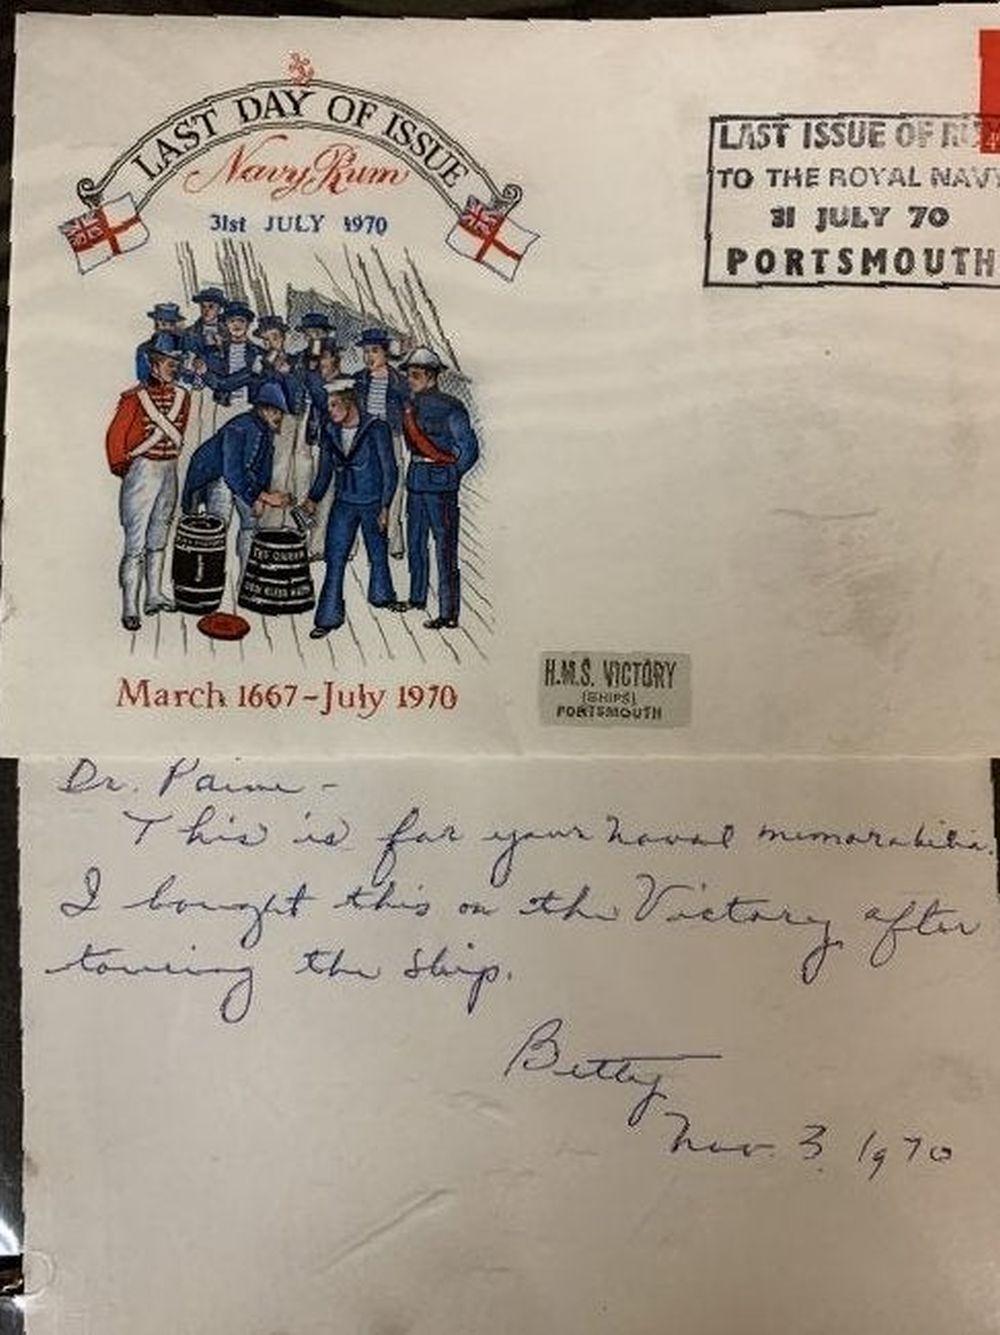 LAST DAY OF ISSUE
Navy Rum
31st JULY 1970
LAST ISSUE OF
TO THE ROYAL NAVY
31 JULY 70
PORTSMOUTH
THE QUEEN
March 1667-July 1970
H.M.S. VICTORY
(SHIPS)
PORTSMOUTH
Dr. Paine -
This is for your naval memorabilia.
I bought this on the Victory after
touring the ship.
Betty
Nov. 3, 1970